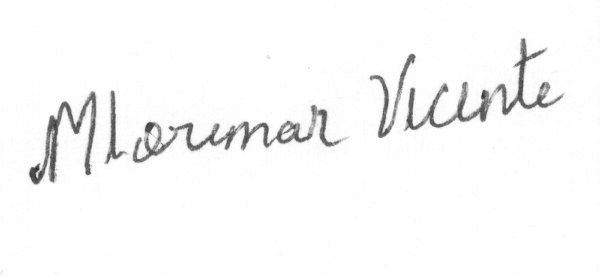 Mlorimar Vicente